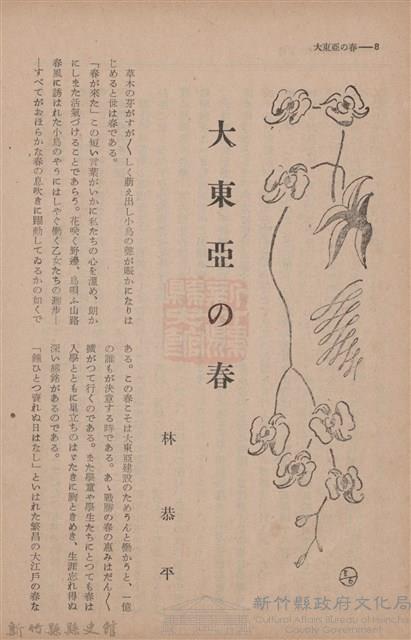 大東亞の春——8
大東亞の春
林恭平
草木の芽がすが〱しく萠え出し小鳥の聲が賑かになりは
じめると世は春である。
「春が來た」この短い言葉がいかに私たちの心を溫め、朗か
にしまた活氣づけることであらう。花咲く野邊、鳥唄ふ山路
春風に誘はれた小鳥のやうにはしやぐ働く乙女たちの漫步—
—すべてがおほらかな春の息吹きに躍動してゐるかの如くで
ある。この春こそは大東亞建設のためうんと働かうと、一億
の誰もが決意する時である。あゝ戰勝の春の惠みはだん〱
擴がつて行くのである。また學童や學生たちにとつても春は
入學とともに巢立ちのはゞたきに胸ときめき、生涯忘れ得ぬ
深い感銘があるのである。
「鐘ひとつ賣れぬ日はなし」といはれた繁昌の大江戶の春な
新竹縣縣史館
新竹縣政府文化局
Cultural Affairs Bureau of Hsinchu
County Government